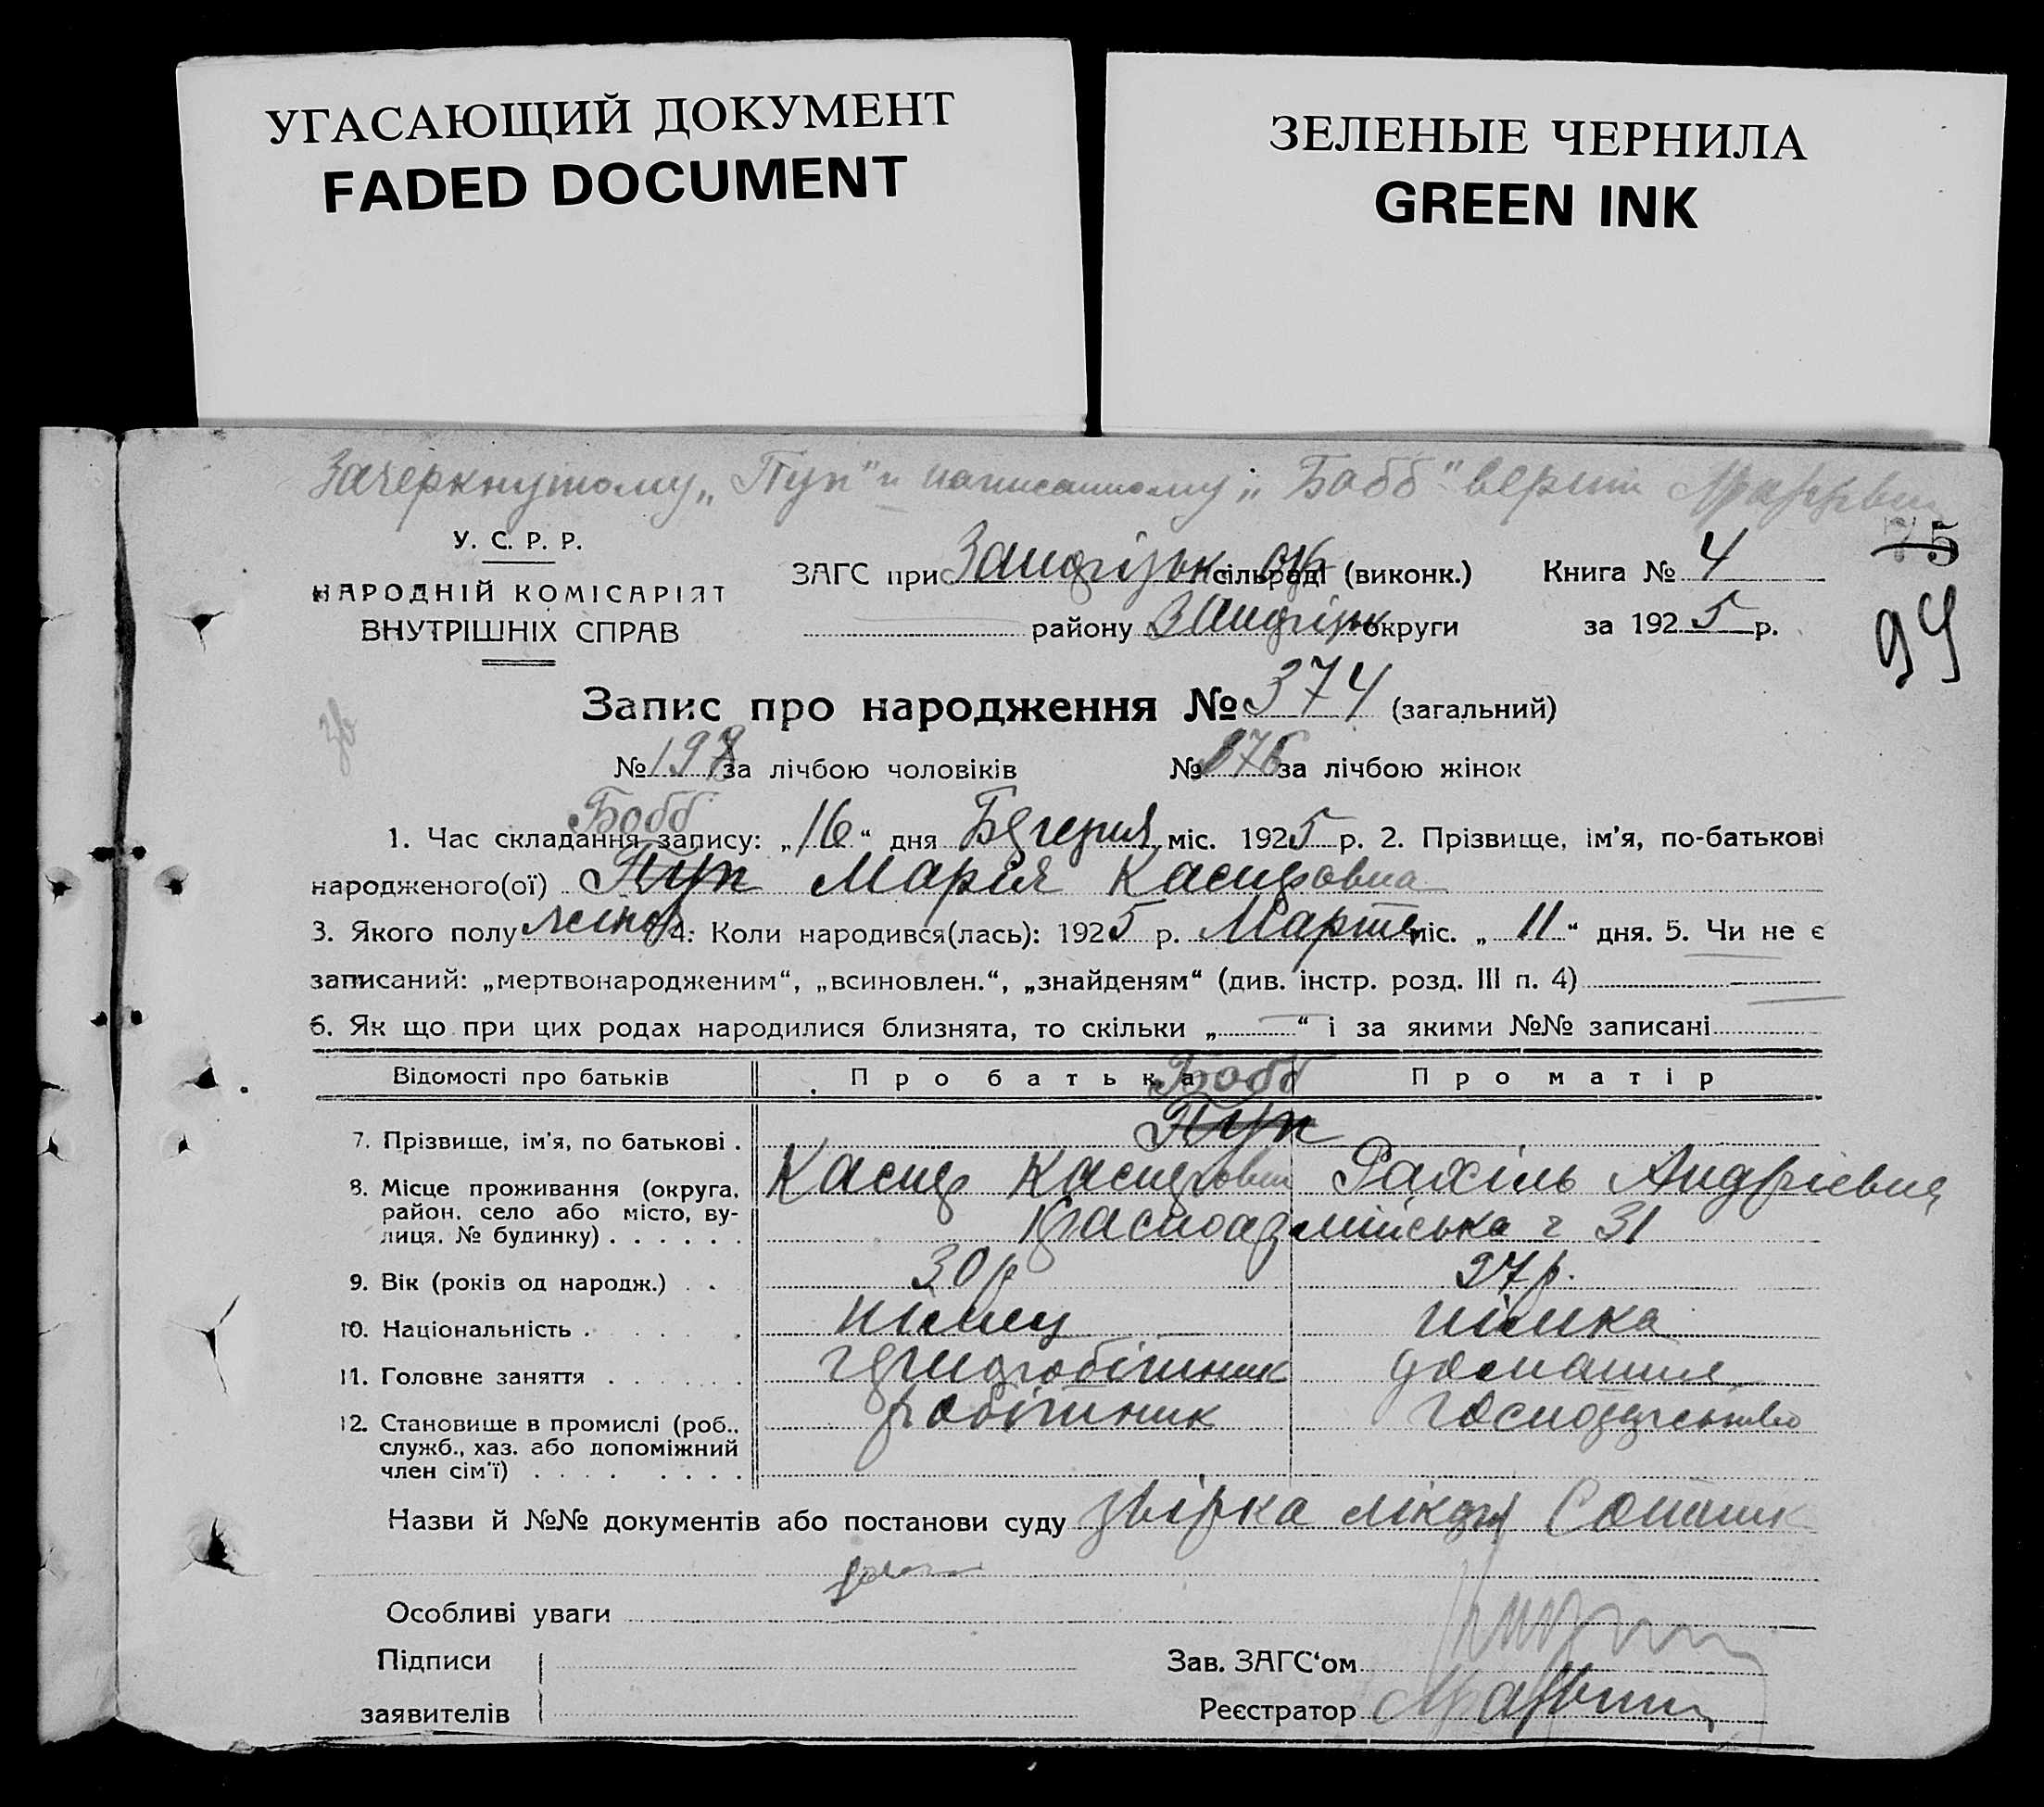 УГАСАЮЩИЙ ДОКУМЕНТ
FADED DOCUMENT
ЗЕЛЕНЫЕ ЧЕРНИЛА
GREEN INK
Зачеркнутому „Пуп" и написанному „Бобб" верить
У. С. Р. Р.
НАРОДНІЙ КОМІСАРІЯТ
ВНУТРІШНІХ СПРАВ
ЗАГС при сільраді (виконк.)
району округи
Книга № 4
за 1925 р.
75
94
Запис про народження № 374 (загальний)
№ 198 за лічбою чоловіків № 176 за лічбою жінок
Бобб
1. Час складання запису: „16“ дня міс. 1925 р. 2. Прізвище, ім'я, по-батькові
народженого(ої) Пуп Марія
3. Якого полу жіноч. 4. Коли народився(лась): 1925 р. Марта міс. „11“ дня. 5. Чи не є
записаний: „мертвонародженим“, „всиновлен.“, „знайденям“ (див. інстр. розд. III п. 4)
6. Як що при цих родах народилися близнята, то скільки „—“ і за якими №№ записані
Відомості про батьків Про батька Про матір
Бобб
7. Прізвище, ім'я, по батькові . Пуп
Рахіль Андрієвна
8. Місце проживання (округа, район, село або місто, вулиця, № будинку) . . . . . . Красноармійська 31
9. Вік (років од народж.) . . 30 р 27 р.
10. Національність . . . . . . німец німка
11. Головне заняття . . . . . . домашнє
12. Становище в промислі (роб., служб., хаз. або допоміжний член сім'ї) . . . . . . . . робітник господарство
Назви й №№ документів або постанови суду
Особливі уваги
Підписи
заявителів
Зав. ЗАГС‘ом
Реєстратор